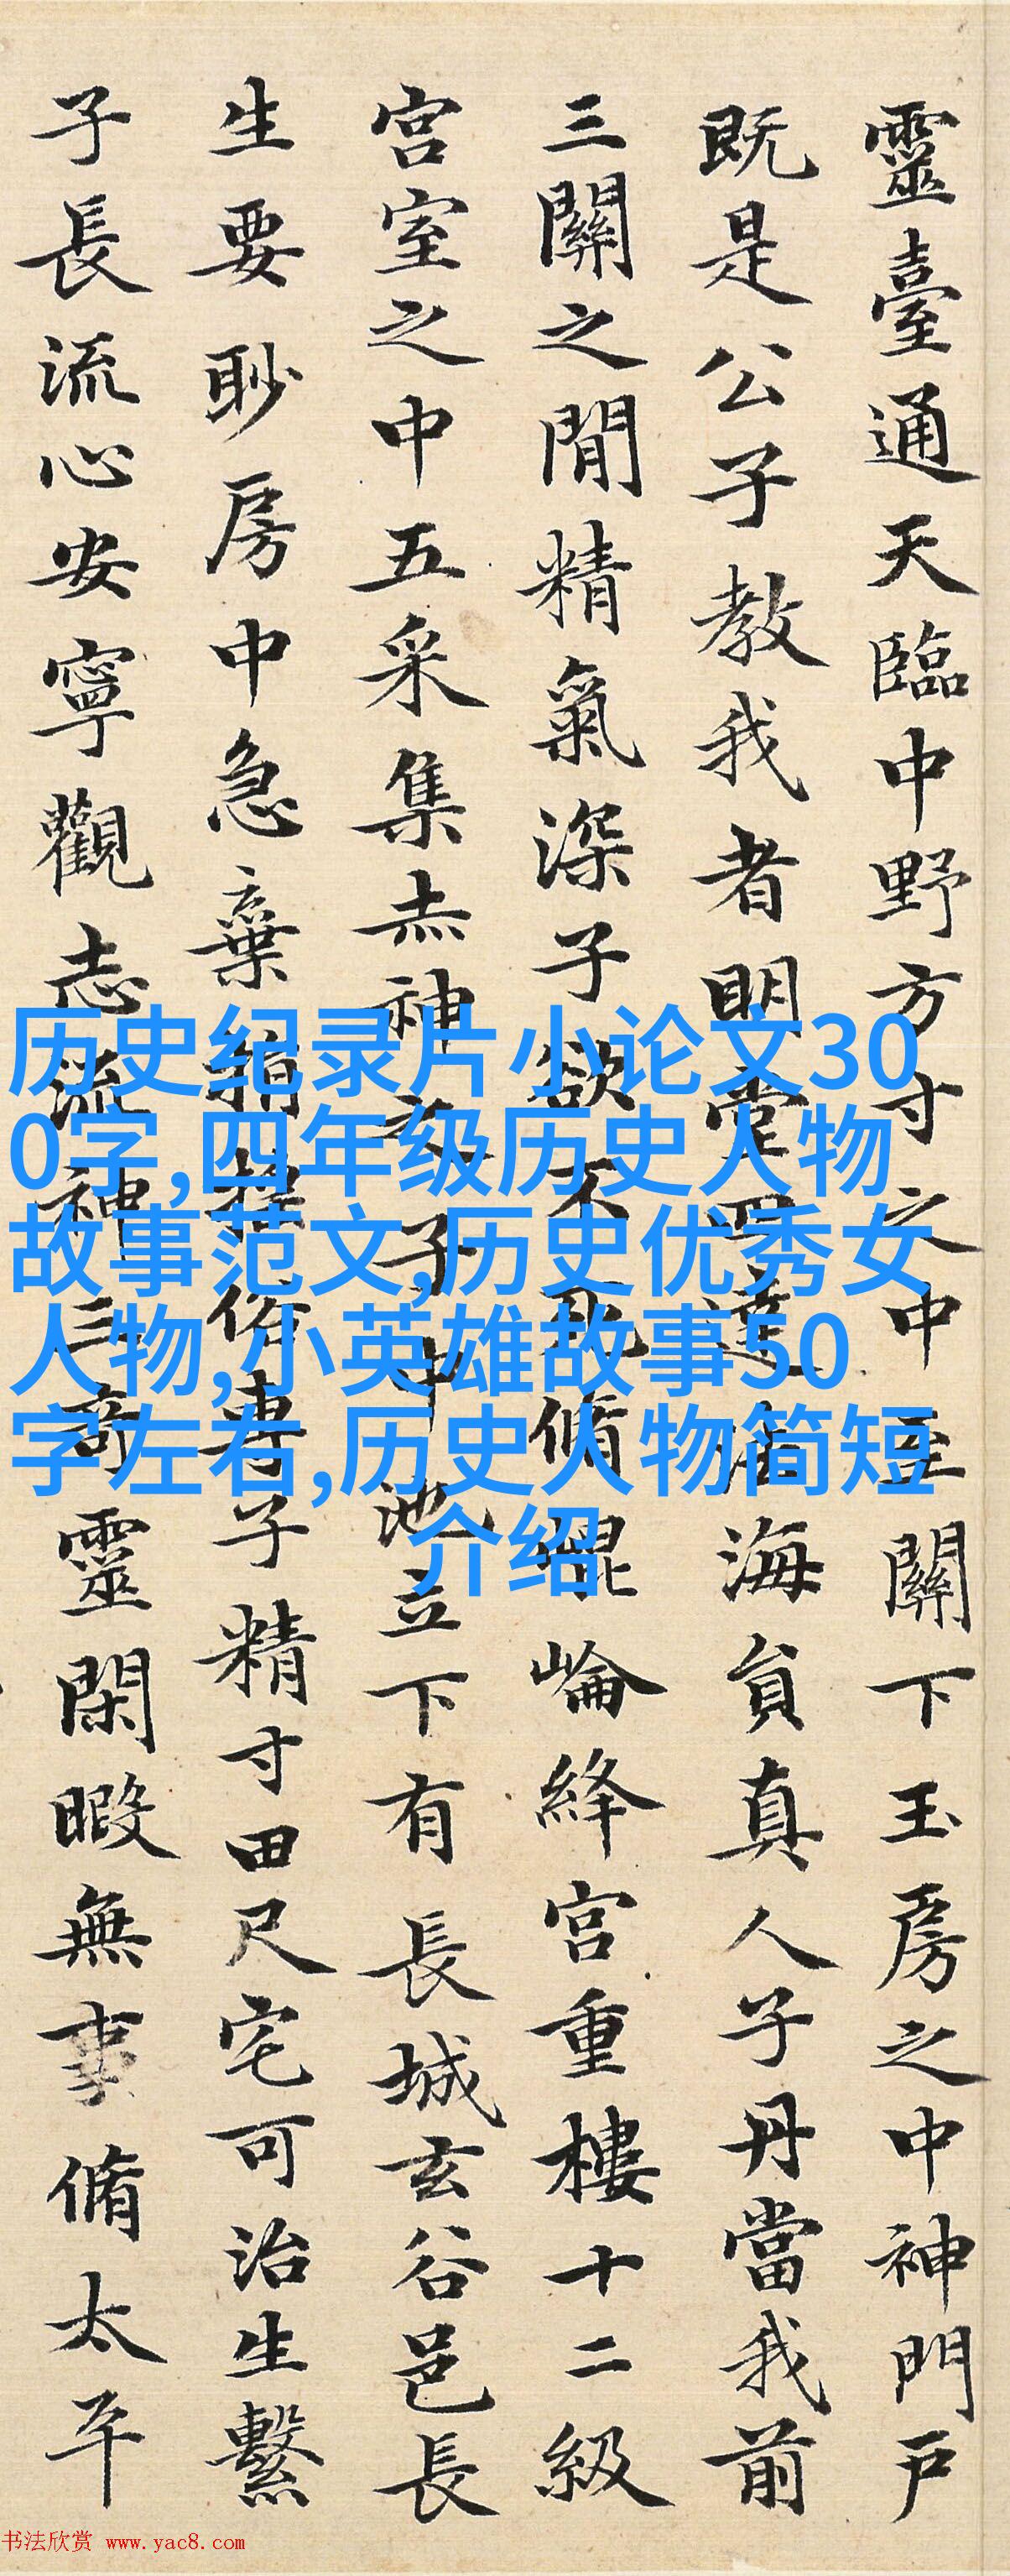 靈臺通天臨中野方寸之中至關下玉房之中神門戶
既是公子教我者明堂四達法海員真人子丹當我前
三關之閒精氣深子欲不死脩崐崘絳宮重樓十二級
宮室之中五采集赤神之子中池立下有長城玄谷邑長
生要眇房中急棄捐搖俗專子精寸田尺宅可治生繫
子長流心安寧觀志流神三奇靈閑暇無事脩太平
历史纪录片小论文30
0字,四年级历史人物
故事范文,历史优秀女
人物,小英雄故事50
字左右,历史人物简短
介绍
书法欣赏 www.yac8.com